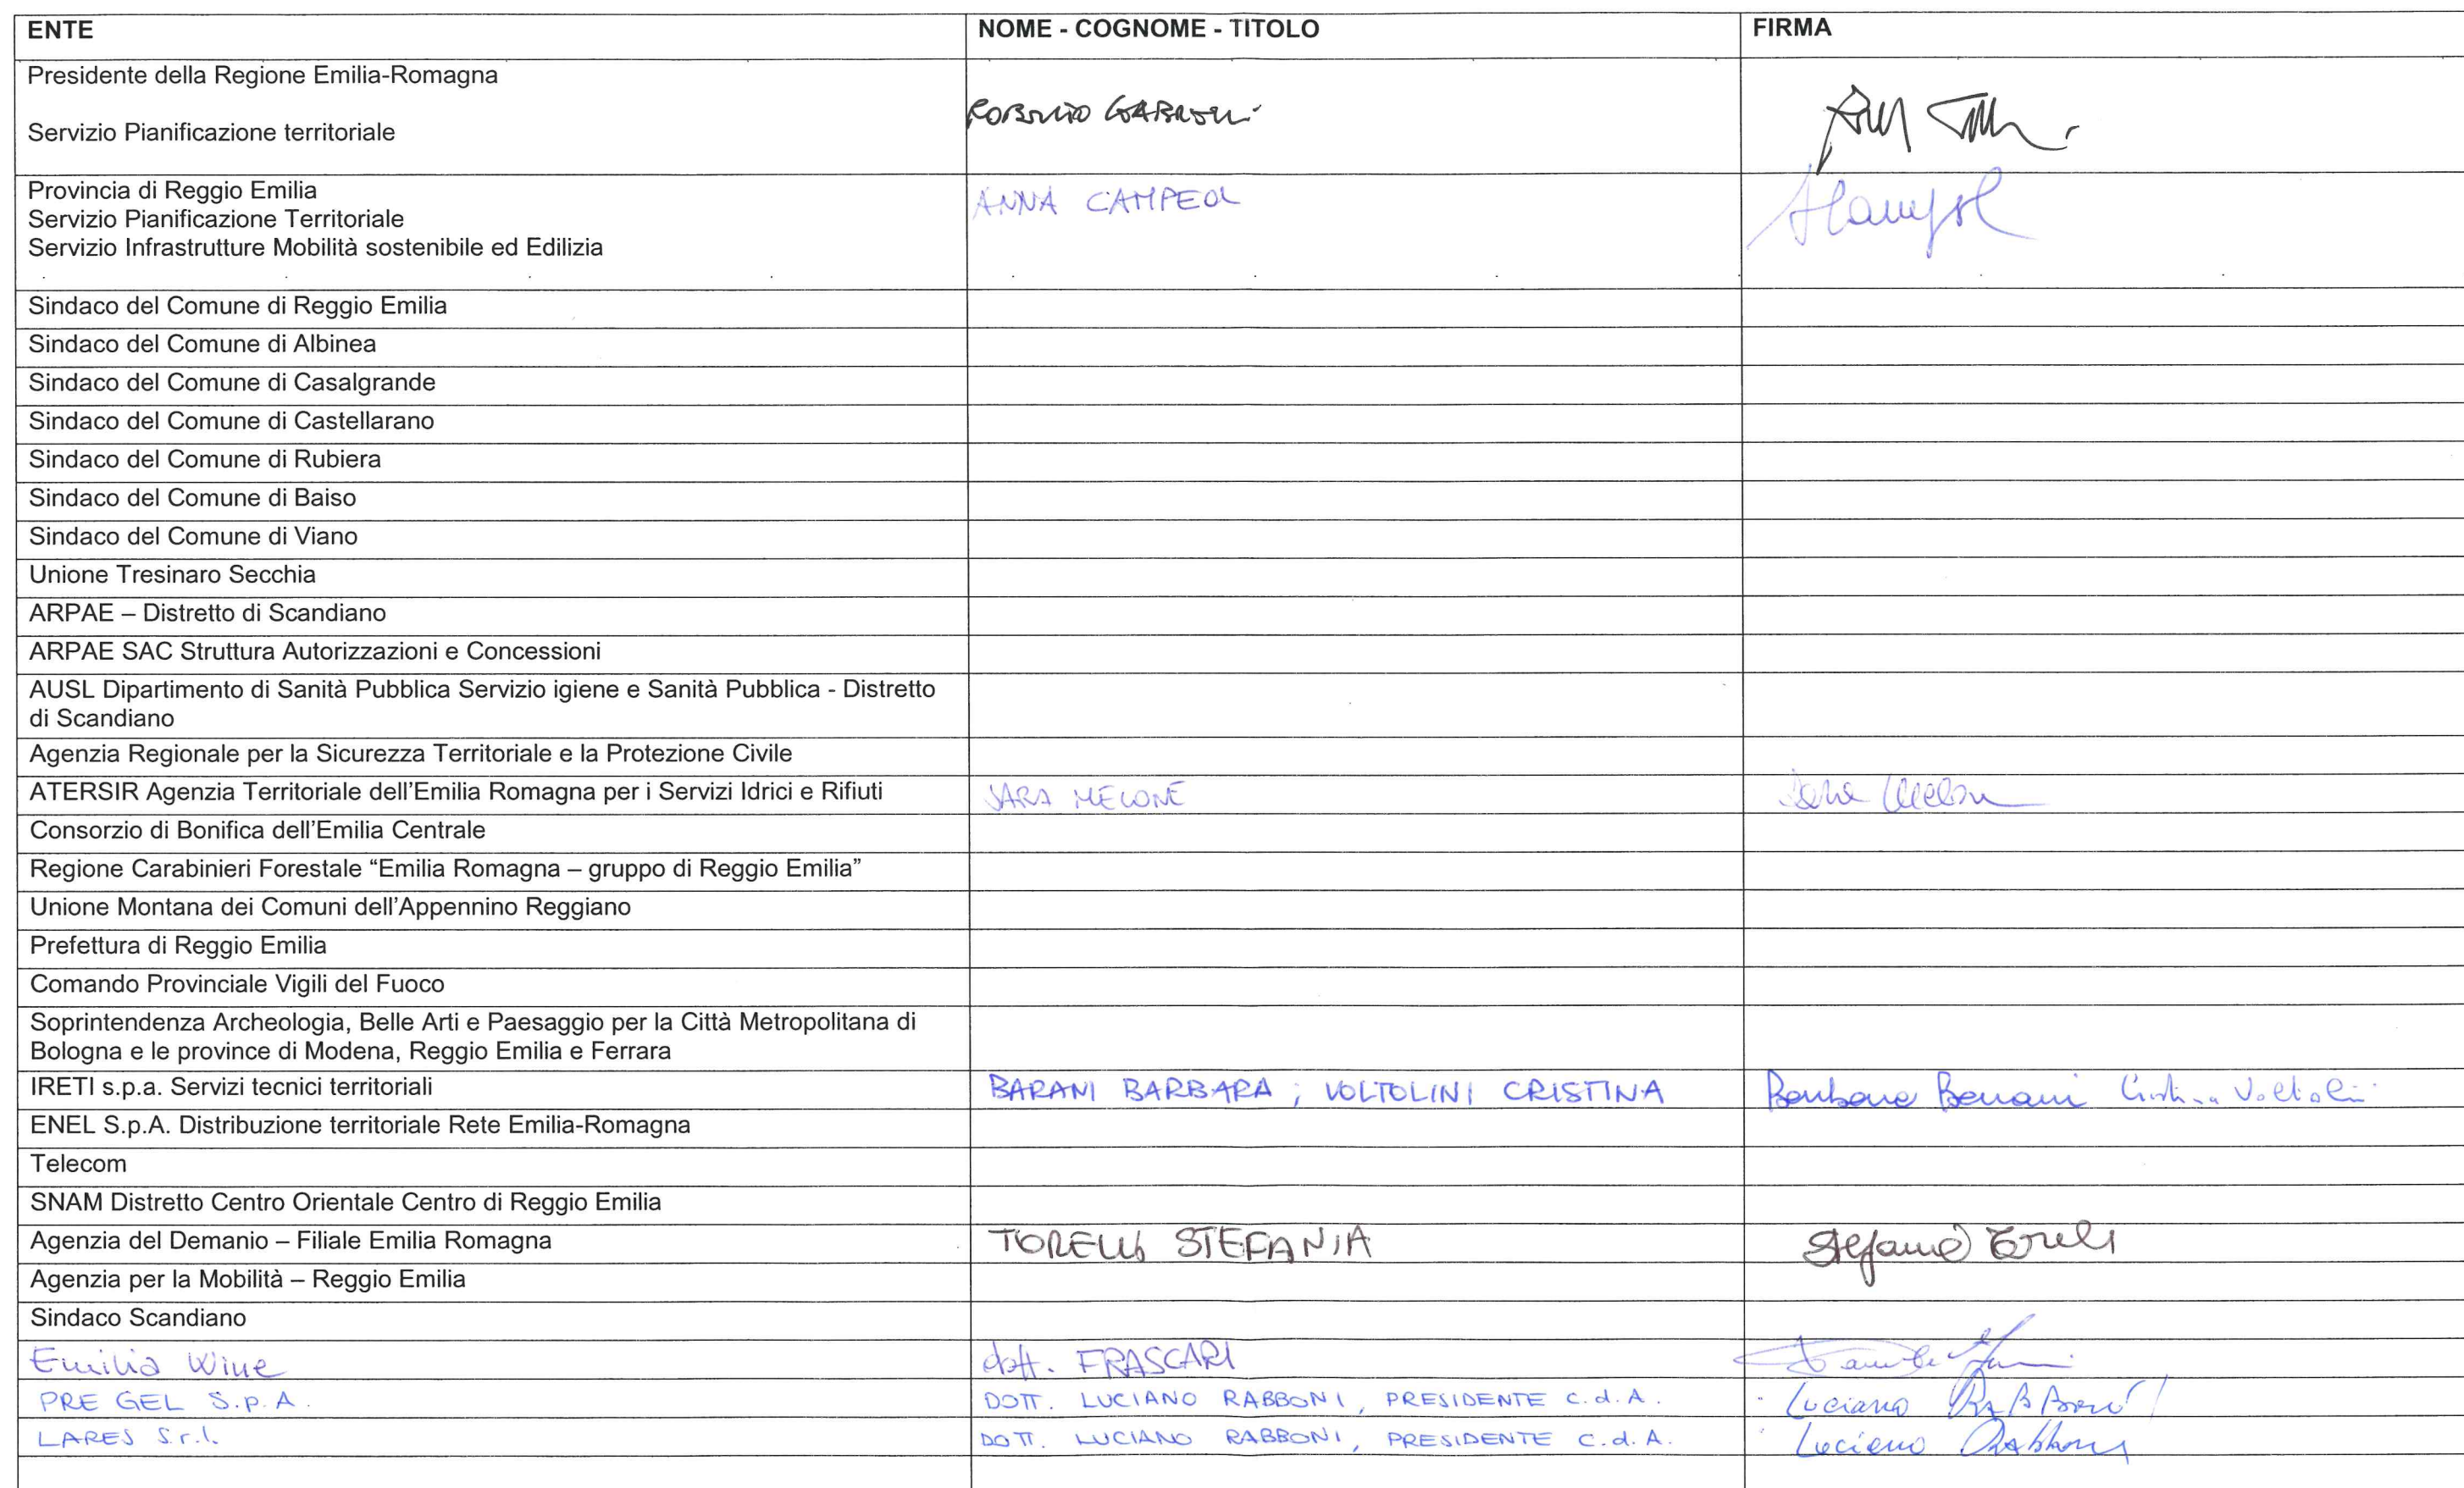 ENTE NOME - COGNOME - TITOLO FIRMA
Presidente della Regione Emilia-Romagna
Servizio Pianificazione territoriale
Provincia di Reggio Emilia ANNA CAMPEOL
Servizio Pianificazione Territoriale
Servizio Infrastrutture Mobilità sostenibile ed Edilizia
Sindaco del Comune di Reggio Emilia
Sindaco del Comune di Albinea
Sindaco del Comune di Casalgrande
Sindaco del Comune di Castellarano
Sindaco del Comune di Rubiera
Sindaco del Comune di Baiso
Sindaco del Comune di Viano
Unione Tresinaro Secchia
ARPAE – Distretto di Scandiano
ARPAE SAC Struttura Autorizzazioni e Concessioni
AUSL Dipartimento di Sanità Pubblica Servizio igiene e Sanità Pubblica - Distretto
di Scandiano
Agenzia Regionale per la Sicurezza Territoriale e la Protezione Civile
ATERSIR Agenzia Territoriale dell'Emilia Romagna per i Servizi Idrici e Rifiuti SARA MELONE Sara Melone
Consorzio di Bonifica dell'Emilia Centrale
Regione Carabinieri Forestale “Emilia Romagna – gruppo di Reggio Emilia”
Unione Montana dei Comuni dell'Appennino Reggiano
Prefettura di Reggio Emilia
Comando Provinciale Vigili del Fuoco
Soprintendenza Archeologia, Belle Arti e Paesaggio per la Città Metropolitana di
Bologna e le province di Modena, Reggio Emilia e Ferrara
IRETI s.p.a. Servizi tecnici territoriali BARANI BARBARA ; VOLTOLINI CRISTINA Barbara Barani Cristina Voltolini
ENEL S.p.A. Distribuzione territoriale Rete Emilia-Romagna
Telecom
SNAM Distretto Centro Orientale Centro di Reggio Emilia
Agenzia del Demanio – Filiale Emilia Romagna TORELLI STEFANIA Stefania Torelli
Agenzia per la Mobilità – Reggio Emilia
Sindaco Scandiano
Emilia Wine dott. FRASCARI
PRE GEL S.p.A. DOTT. LUCIANO RABBONI, PRESIDENTE C.d.A. Luciano Rabboni
LARES S.r.l. DOTT. LUCIANO RABBONI, PRESIDENTE C.d.A. Luciano Rabboni